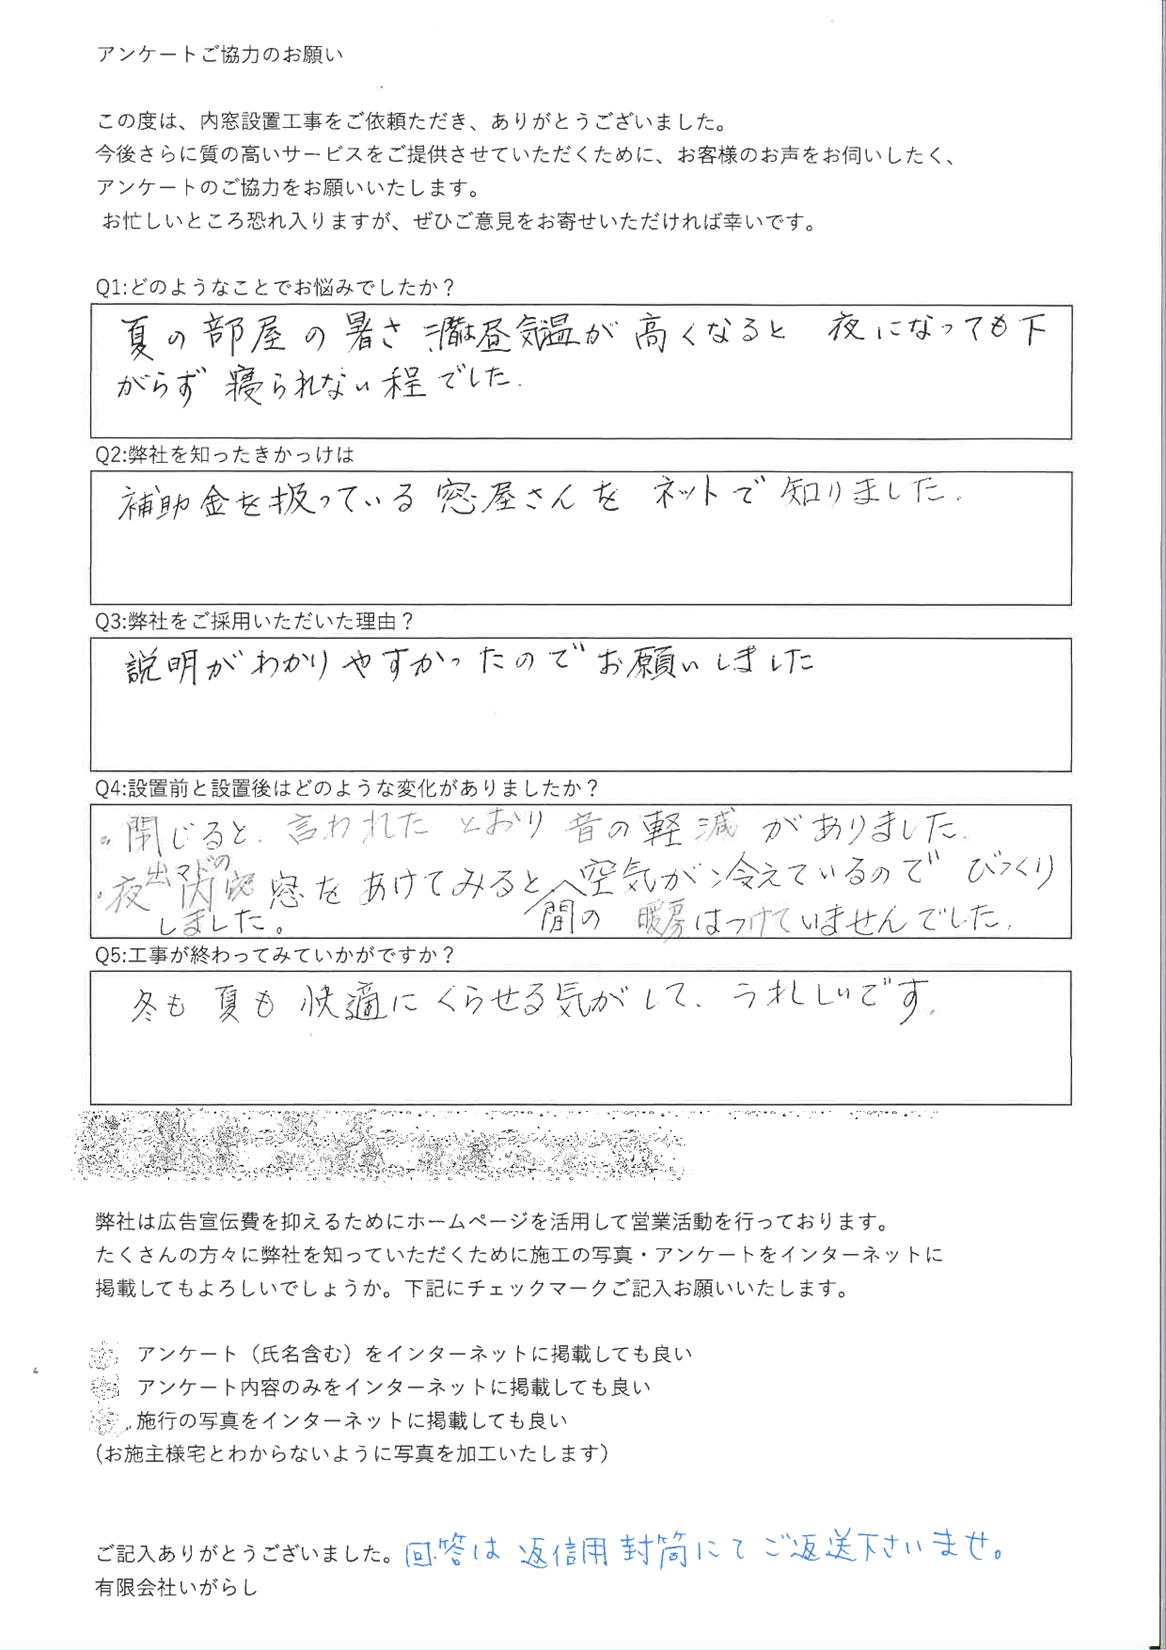 アンケートご協力のお願い
この度は、内窓設置工事をご依頼ただき、ありがとうございました。
今後さらに質の高いサービスをご提供させていただくために、お客様のお声をお伺いしたく、
アンケートのご協力をお願いいたします。
お忙しいところ恐れ入りますが、ぜひご意見をお寄せいただければ幸いです。
Q1:どのようなことでお悩みでしたか？
夏の部屋の暑さ 昼気温が高くなると 夜になっても下
がらず寝られない程でした.
Q2:弊社を知ったきかっけは
補助金を扱っている窓屋さんを ネットで知りました.
Q3:弊社をご採用いただいた理由？
説明がわかりやすかったのでお願いしました
Q4:設置前と設置後はどのような変化がありましたか？
。閉じると、言われたとおり音の軽減がありました.
・夜出マドの内窓窓をあけてみるとへ空気が冷えているのでびっくり
しました。
間の 暖房はつけていませんでした.
Q5:工事が終わってみていかがですか？
冬も夏も快適にくらせる気がして、うれしいです.
弊社は広告宣伝費を抑えるためにホームページを活用して営業活動を行っております。
たくさんの方々に弊社を知っていただくために施工の写真・アンケートをインターネットに
掲載してもよろしいでしょうか。下記にチェックマークご記入お願いいたします。
アンケート（氏名含む）をインターネットに掲載しても良い
アンケート内容のみをインターネットに掲載しても良い
施行の写真をインターネットに掲載しても良い
(お施主様宅とわからないように写真を加工いたします）
ご記入ありがとうございました。回答は返信用封筒にてご返送下さいませ。
有限会社いがらし